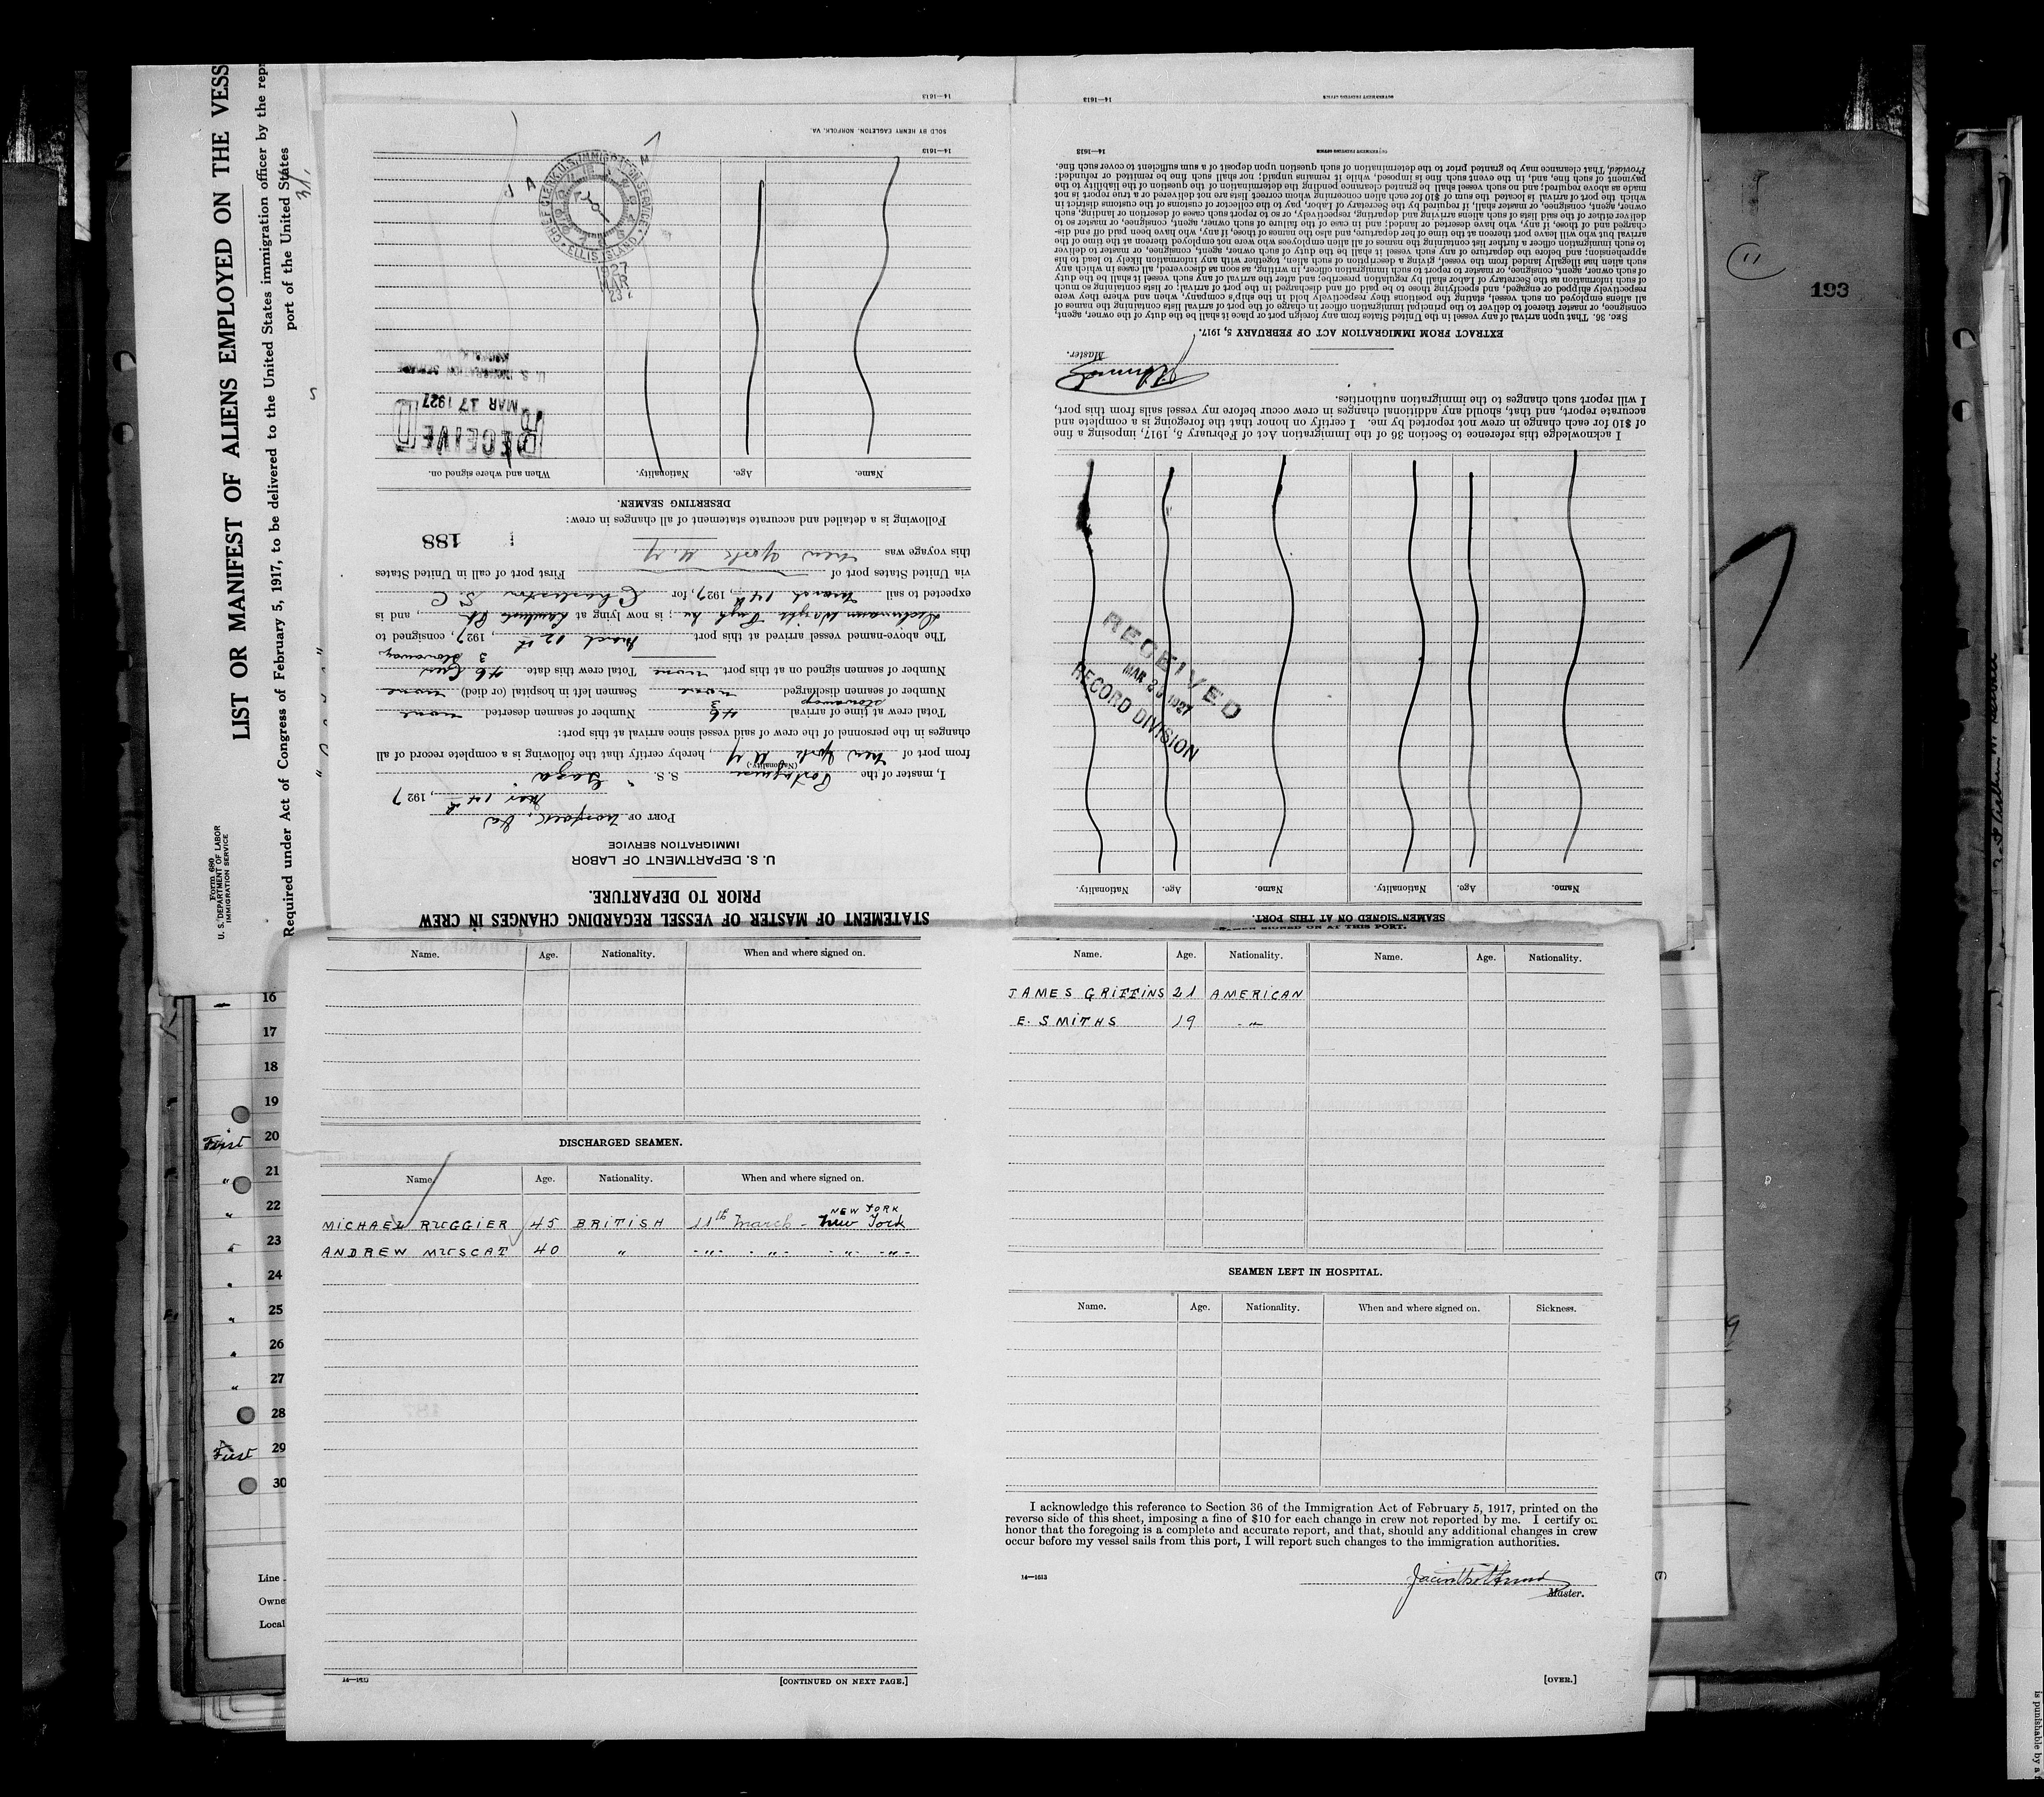 LIST OR MANIFEST OF ALIENS EMPLOYED ON THE VESS
Required under Act of Congress of February 5, 1917, to be delivered to the United States immigration officer by the repr
port of the United States
Form 680
U. S. DEPARTMENT OF LABOR
IMMIGRATION SERVICE
STATEMENT OF MASTER OF VESSEL REGARDING CHANGES IN CREW
PRIOR TO DEPARTURE.
U. S. DEPARTMENT OF LABOR
IMMIGRATION SERVICE
PORT OF Norfolk, Va
Mar 14th, 1927
I, master of the Portuguese S. S.
(Nationality.)
from port of New York N.Y, hereby certify that the following is a complete record of all
changes in the personnel of the crew of said vessel since arrival at this port:
Total crew at time of arrival 46 3 stowaways Number of seamen deserted none
Number of seamen discharged none Seamen left in hospital (or died) none
Number of seamen signed on at this port none Total crew this date 46 3 stowaways
The above-named vessel arrived at this port March 12th, 1927, consigned to
; is now lying at Lamberts Pt, and is
expected to sail March 14th 1927, for Charleston S.C
via United States port of First port of call in United States
this voyage was New York N.Y
188
Following is a detailed and accurate statement of all changes in crew:
DESERTING SEAMEN.
Name. Age. Nationality. When and where signed on.
RECEIVED
MAR 17 1927
U. S. IMMIGRATION SERVICE
CHIEF CLERK U.S. IMMIGRATION SERVICE
ELLIS ISLAND
1927
MAR
23
14—1613
SOLD BY HENRY EAGLETON, NORFOLK, VA.
14—1613
SEAMEN SIGNED ON AT THIS PORT.
Name. Age. Nationality. Name. Age. Nationality.
RECEIVED
MAR 23 1927
RECORD DIVISION
I acknowledge this reference to Section 36 of the Immigration Act of February 5, 1917, imposing a fine
of $10 for each change in crew not reported by me. I certify on honor that the foregoing is a complete and
accurate report, and that, should any additional changes in crew occur before my vessel sails from this port,
I will report such changes to the immigration authorities.
Master.
EXTRACT FROM IMMIGRATION ACT OF FEBRUARY 5, 1917.
SEC. 36. That upon arrival of any vessel in the United States from any foreign port or place it shall be the duty of the owner, agent,
consignee, or master thereof to deliver to the principal immigration officer in charge of the port of arrival lists containing the names of
all aliens employed on such vessel, stating the positions they respectively hold in the ship's company, when and where they were
respectively shipped or engaged, and specifying those to be paid off and discharged in the port of arrival; or lists containing so much
of such information as the Secretary of Labor shall by regulation prescribe; and after the arrival of any such vessel it shall be the duty
of such owner, agent, consignee, or master to report to such immigration officer, in writing, as soon as discovered, all cases in which any
such alien has illegally landed from the vessel, giving a description of such alien, together with any information likely to lead to his
apprehension; and before the departure of any such vessel it shall be the duty of such owner, agent, consignee, or master to deliver
to such immigration officer a further list containing the names of all alien employees who were not employed thereon at the time of the
arrival but who will leave port thereon at the time of her departure, and also the names of those, if any, who have been paid off and dis-
charged and of those, if any, who have deserted or landed; and in case of the failure of such owner, agent, consignee, or master so to
deliver either of the said lists of such aliens arriving and departing, respectively, or so to report such cases of desertion or landing, such
owner, agent, consignee, or master, shall, if required by the Secretary of Labor, pay to the collector of customs of the customs district in
which the port of arrival is located the sum of $10 for each alien concerning whom correct lists are not delivered or a true report is not
made as above required; and no such vessel shall be granted clearance pending the determination of the question of the liability to the
payment of such fine, and, in the event such fine is imposed, while it remains unpaid; nor shall such fine be remitted or refunded:
Provided, That clearance may be granted prior to the determination of such question upon deposit of a sum sufficient to cover such fine.
14—1613 GOVERNMENT PRINTING OFFICE
14—1613 GOVERNMENT PRINTING OFFICE
193
11
Name. Age. Nationality. When and where signed on.
DISCHARGED SEAMEN.
Name. Age. Nationality. When and where signed on.
MICHAEL RUGGIER 45 BRITISH 11th March - New York
NEW YORK
ANDREW MUSCAT 40 " -"- -"- -"- -"-
14—1613
[CONTINUED ON NEXT PAGE.]
SEAMEN SIGNED ON AT THIS PORT.
Name. Age. Nationality. Name. Age. Nationality.
JAMES GRIFFINS 21 AMERICAN
E. SMITHS 19 -"-
SEAMEN LEFT IN HOSPITAL.
Name. Age. Nationality. When and where signed on. Sickness.
I acknowledge this reference to Section 36 of the Immigration Act of February 5, 1917, printed on the
reverse side of this sheet, imposing a fine of $10 for each change in crew not reported by me. I certify on
honor that the foregoing is a complete and accurate report, and that, should any additional changes in crew
occur before my vessel sails from this port, I will report such changes to the immigration authorities.
14—1613
Master.
[OVER.]
16
17
18
19
First 20
" 21
" 22
" 23
" 24
" 25
" 26
" 27
28
First 29
30
Line
Owne
Local
(7)
is punishable by a f